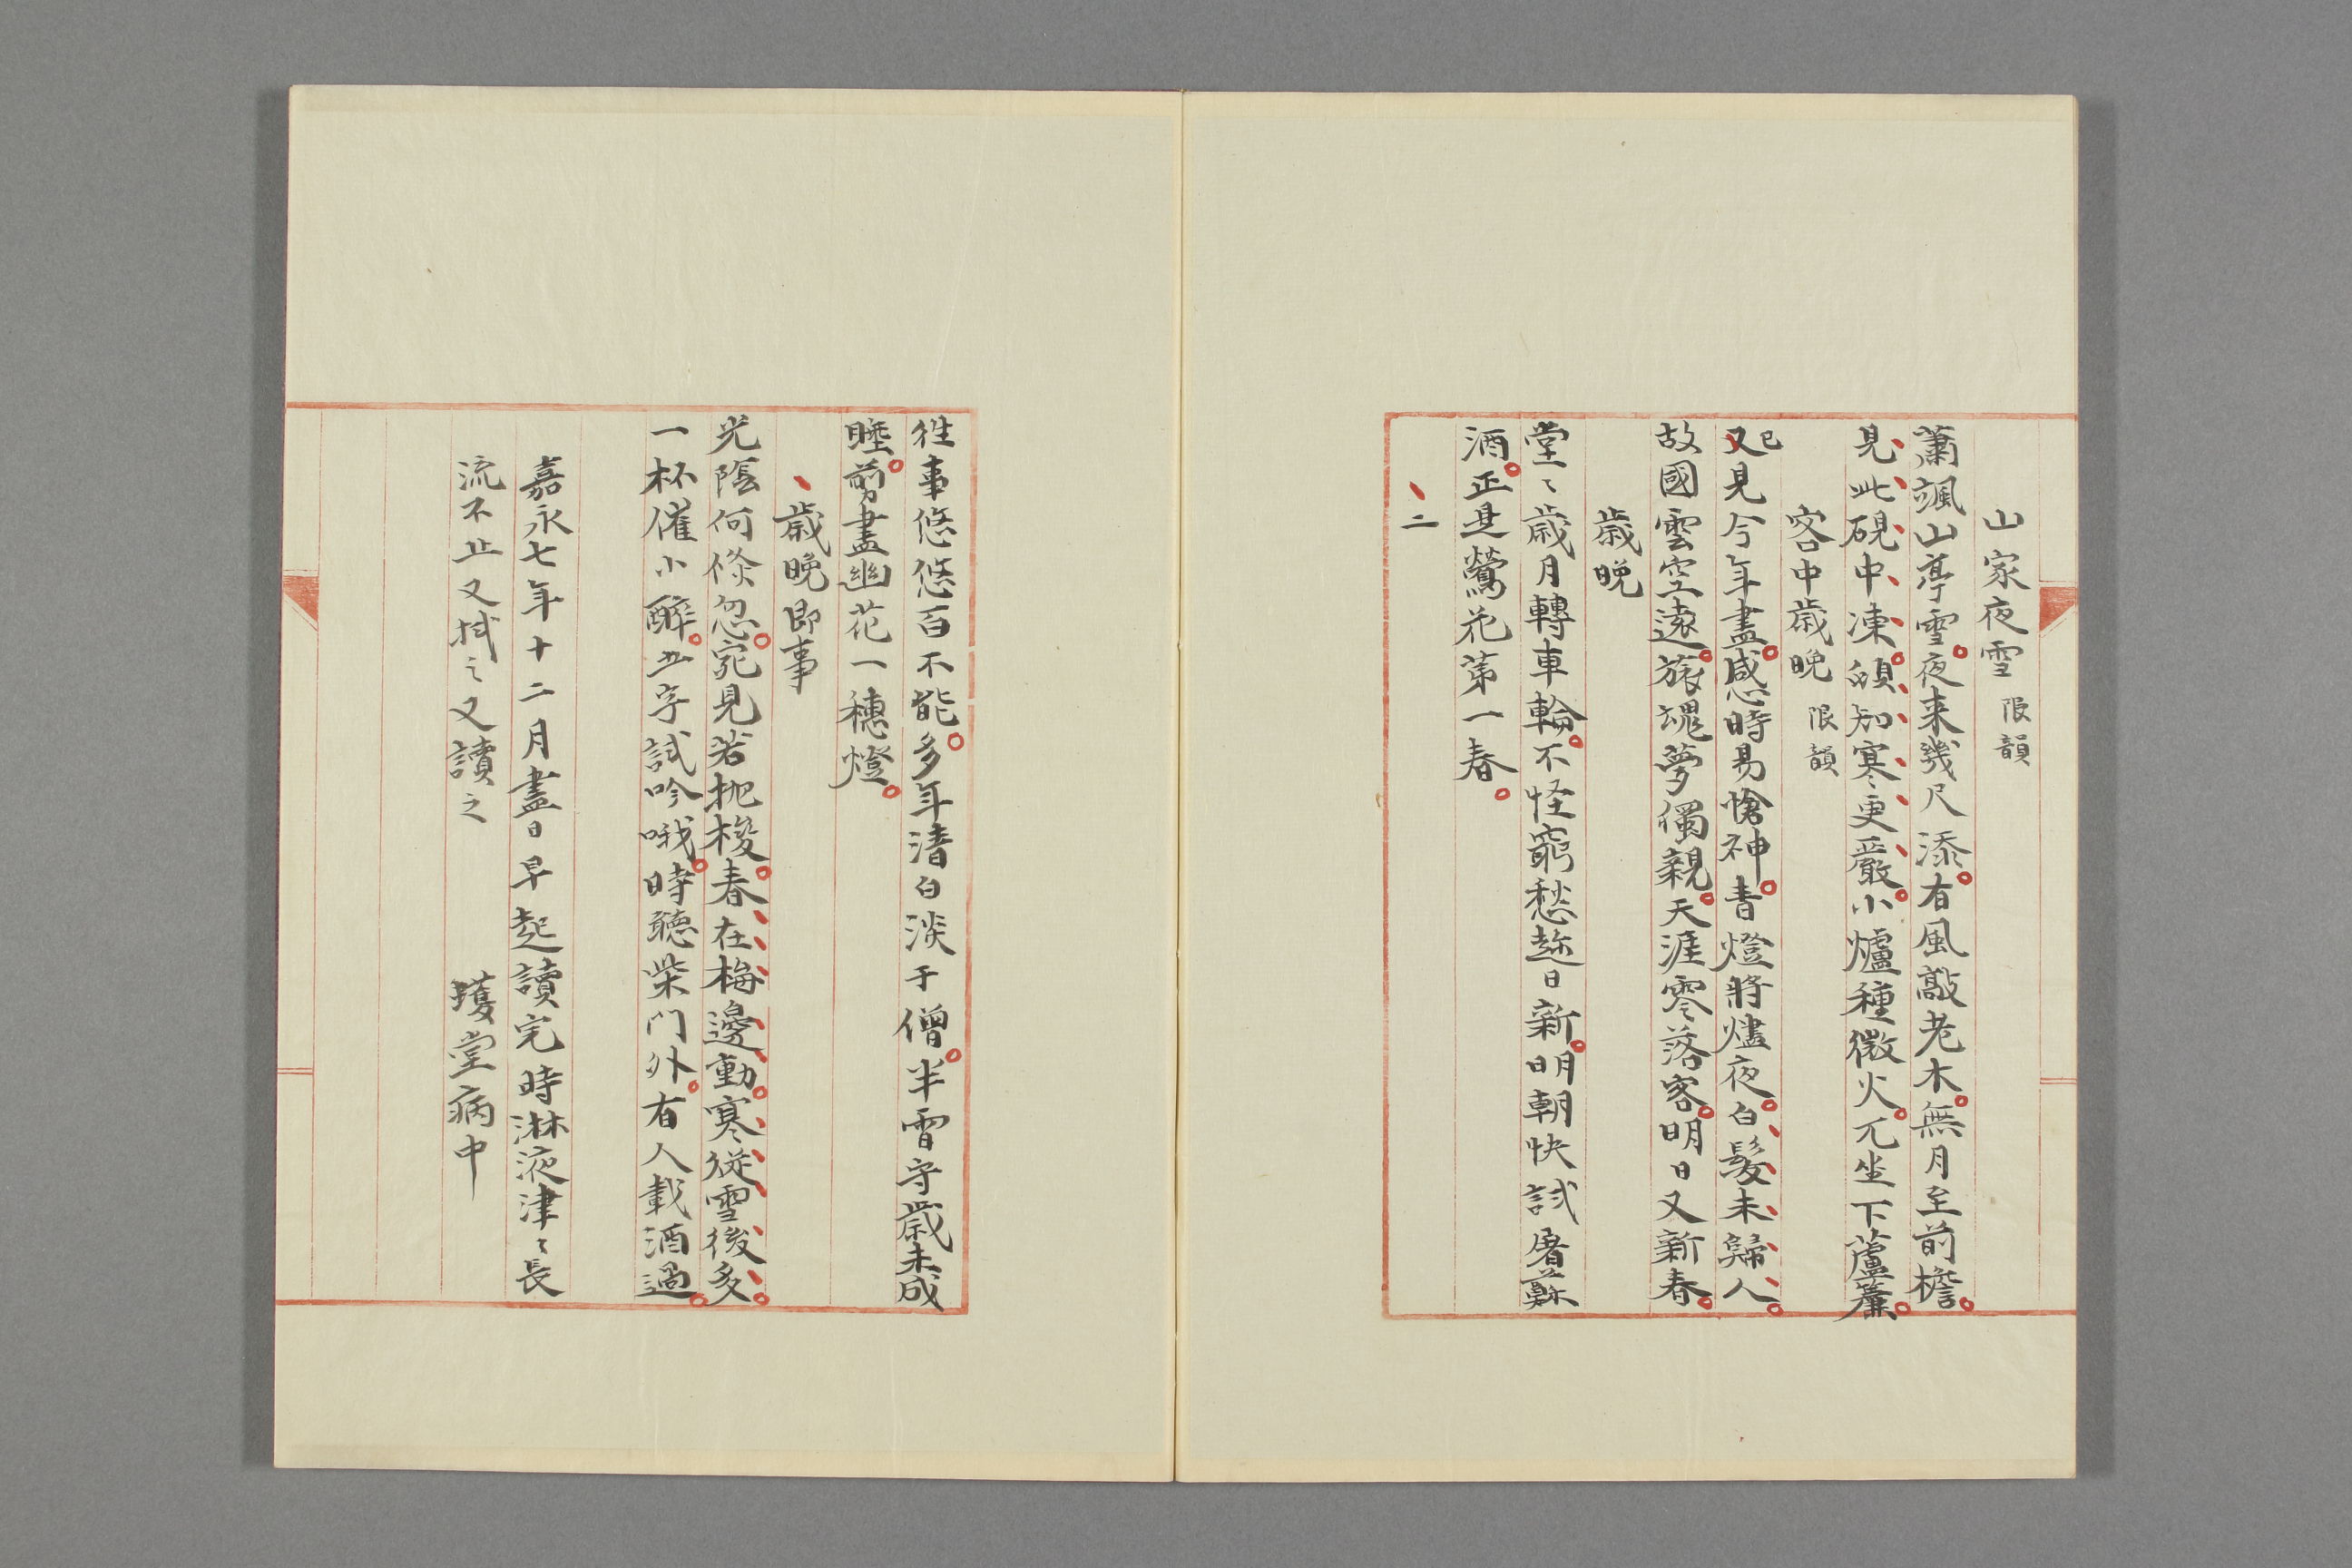 山家夜雪 限韻
蕭颯山亭雪夜来幾尺添有風敲老木無月至前檐
見此硯中凍頗知寒更嚴小爐種微火兀坐下蘆簾
客中歳晩 限韻
已
又見今年盡感時易愴神青燈將燼夜白髮未歸人
故國雲空遠旅魂夢獨親天涯零落客明日又新春
歳晩
堂〻歳月轉車輪不怪窮愁趂日新明朝快試屠蘇
酒正是鶯花第一春
二
往事悠悠百不能多年清白淡于僧半宵守歳未成
睡剪盡幽花一穗燈
歳晩即事
光陰何倏忽宛見若抛梭春在梅邊動寒従雪後多
一杯催小醉五字試吟哦時聽柴門外有人載酒過
嘉永七年十二月盡日早起讀完時淋液津〻長
流不止又拭之又讀之 瓊堂病中